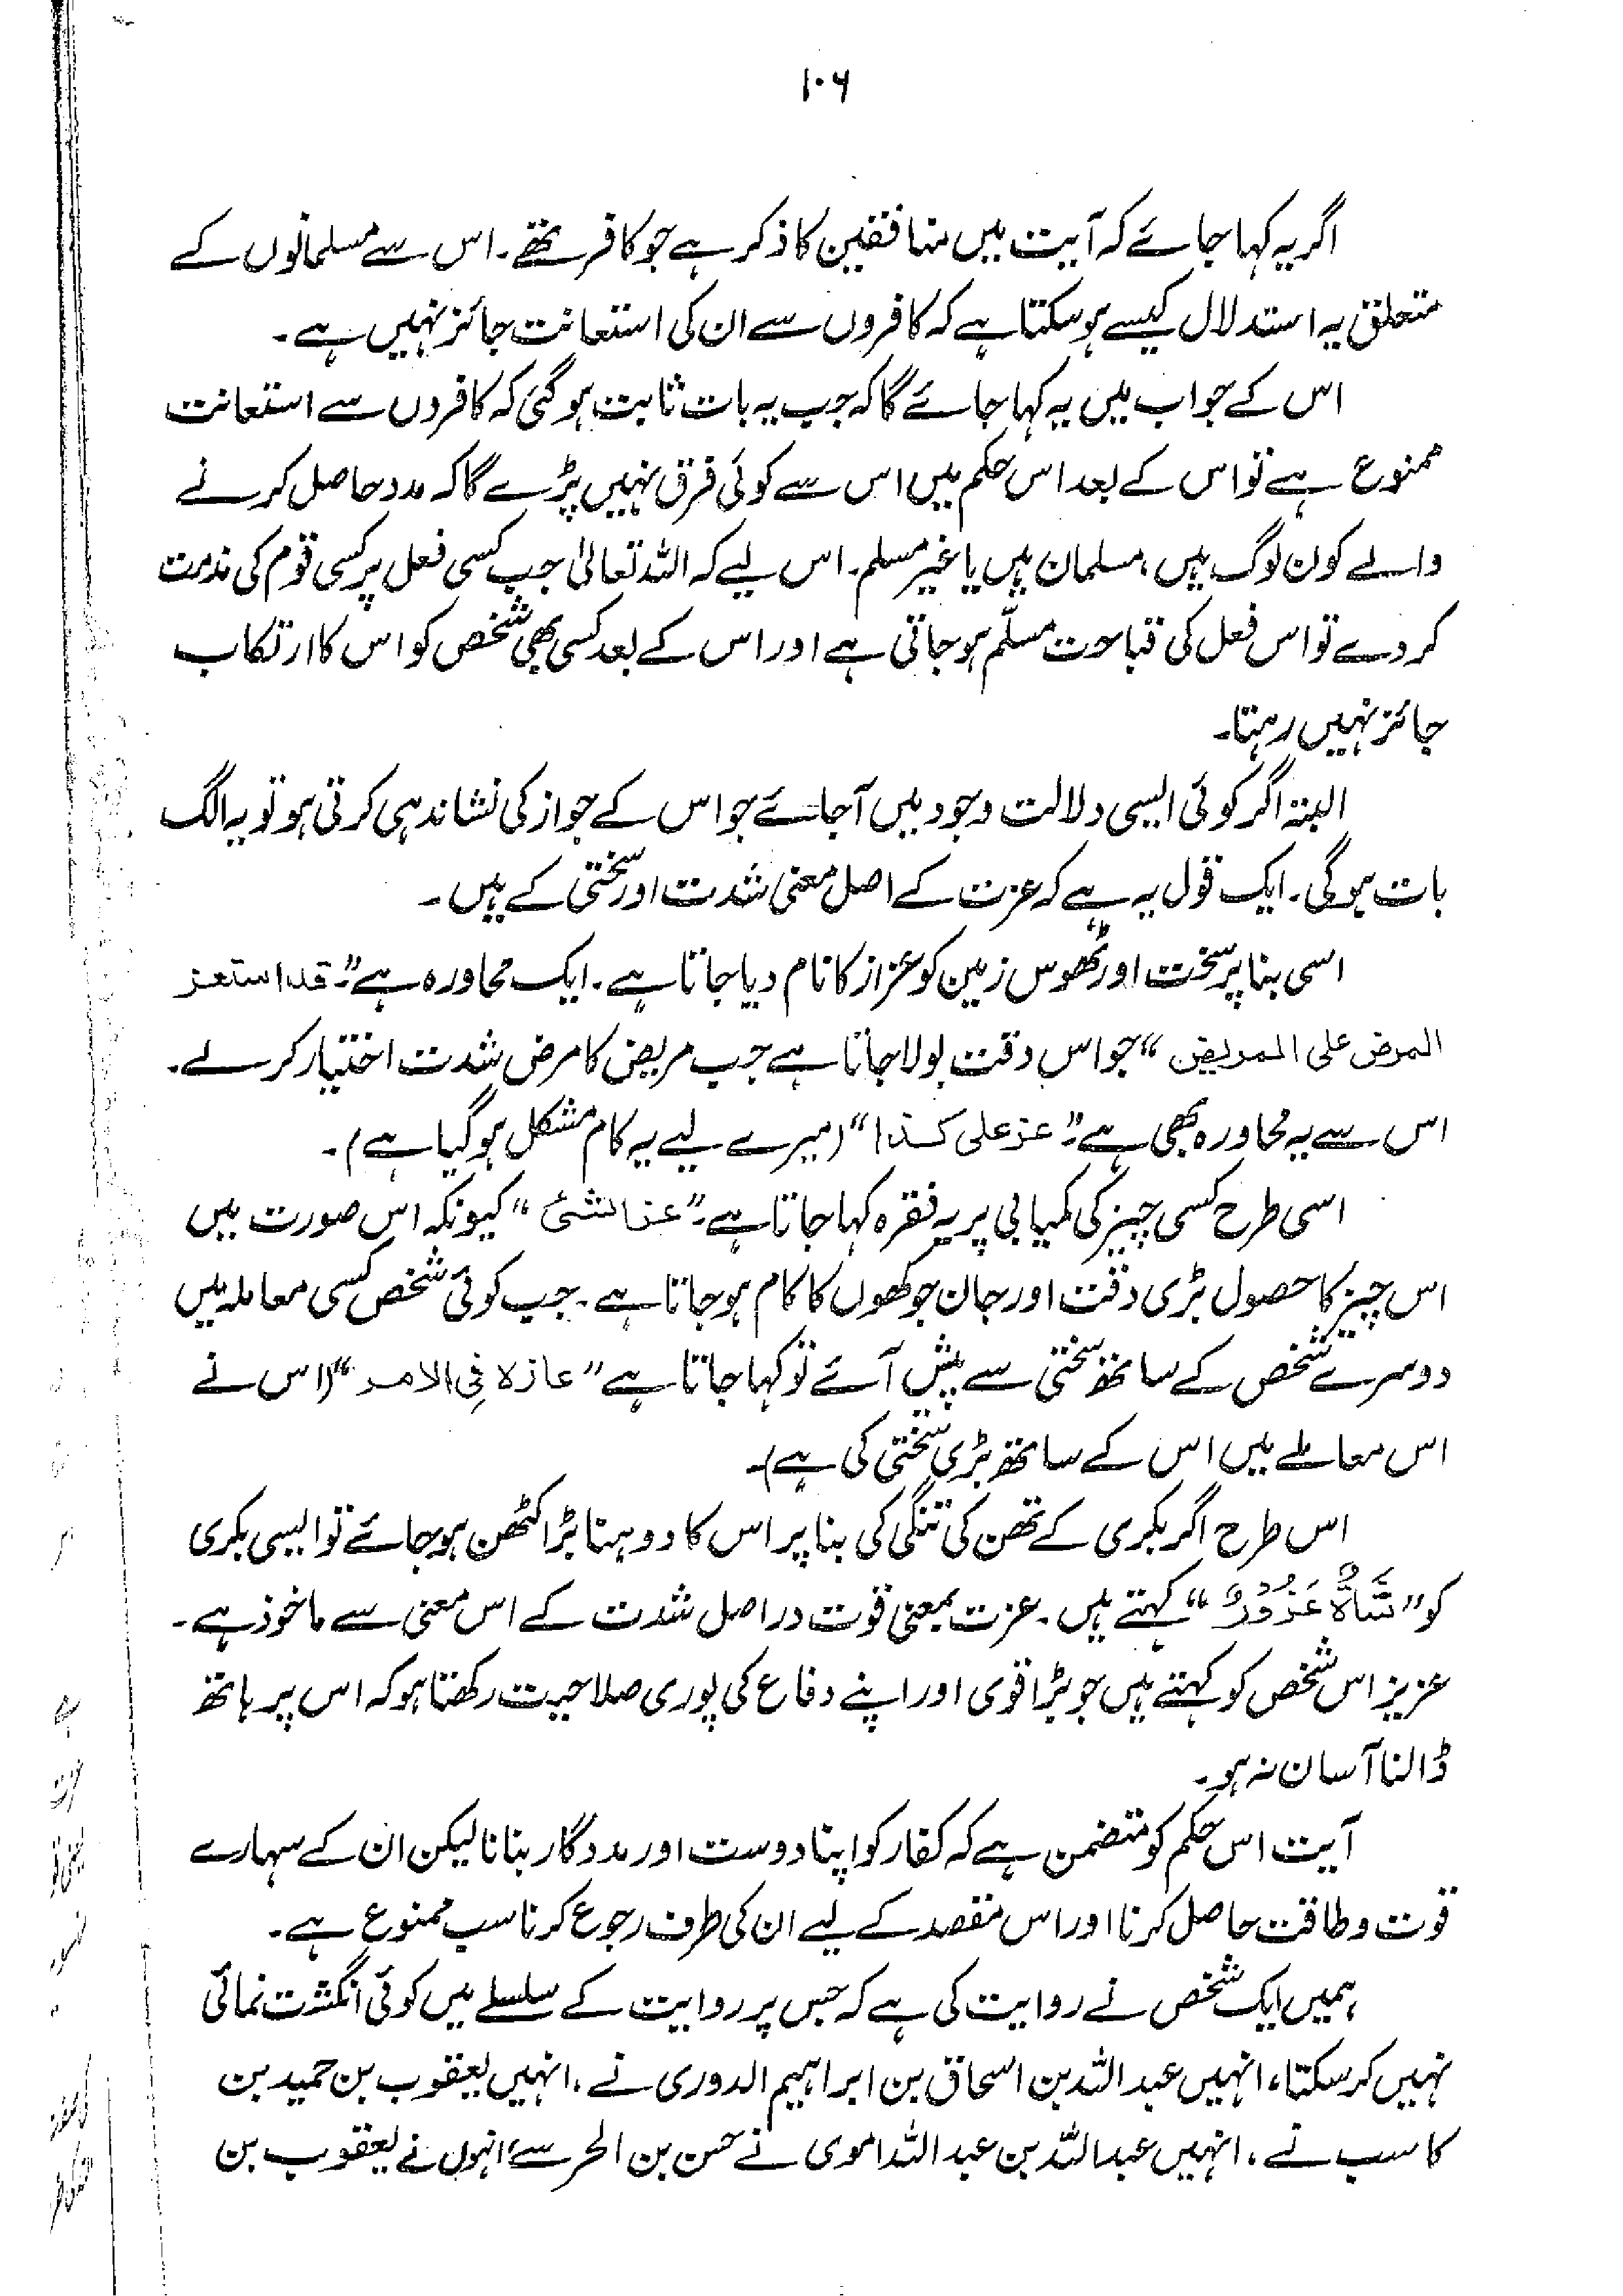 ۱۰۶
اگر یہ کہا جائے کہ آیت میں منافقین کا ذکر ہے جو کافر تھے۔ اس سے مسلمانوں کے
متعلق یہ استدلال کیسے ہو سکتا ہے کہ کافروں سے ان کی استعانت جائز نہیں ہے۔
اس کے جواب میں یہ کہا جائے گا کہ جب یہ بات ثابت ہو گئی کہ کافروں سے استعانت
ممنوع ہے تو اس کے بعد اس حکم میں اس سے کوئی فرق نہیں پڑے گا کہ مدد حاصل کرنے
والے کون لوگ ہیں، مسلمان ہیں یا غیر مسلم۔ اس لیے کہ اللہ تعالیٰ جب کسی فعل پر کسی قوم کی مذمت
کر دے تو اس فعل کی قباحت مسلّم ہو جاتی ہے اور اس کے بعد کسی بھی شخص کو اس کا ارتکاب
جائز نہیں رہتا۔
البتہ اگر کوئی ایسی دلالت وجود میں آجائے جو اس کے جواز کی نشاندہی کرتی ہو تو یہ الگ
بات ہو گی۔ ایک قول یہ ہے کہ عزت کے اصل معنی شدت اور سختی کے ہیں۔
اسی بنا پر سخت اور ٹھوس زمین کو عزاز کا نام دیا جاتا ہے۔ ایک محاورہ ہے "قد استعز
المرض علی المریض" جو اس وقت بولا جاتا ہے جب مریض کا مرض شدت اختیار کر لے۔
اس سے یہ محاورہ بھی ہے "عز علی کذا" (میرے لیے یہ کام مشکل ہو گیا ہے)۔
اسی طرح کسی چیز کی کمیابی پر یہ فقرہ کہا جاتا ہے۔ "عز الشئ" کیونکہ اس صورت میں
اس چیز کا حصول بڑی دقت اور جان جوکھوں کا کام ہو جاتا ہے۔ جب کوئی شخص کسی معاملہ میں
دوسرے شخص کے ساتھ سختی سے پیش آئے تو کہا جاتا ہے "عازہ فی الامر" (اس نے
اس معاملے میں اس کے ساتھ بڑی سختی کی ہے)۔
اس طرح اگر بکری کے تھن کی تنگی کی بنا پر اس کا دوہنا بڑا کٹھن ہو جائے تو ایسی بکری
کو "شَاۃٌ عَزُوْزٌ" کہتے ہیں۔ عزت بمعنی قوت دراصل شدت کے اس معنی سے ماخوذ ہے۔
عزیز اس شخص کو کہتے ہیں جو بڑا قوی اور اپنے دفاع کی پوری صلاحیت رکھتا ہو کہ اس پر ہاتھ
ڈالنا آسان نہ ہو۔
آیت اس حکم کو متضمن ہے کہ کفار کو اپنا دوست اور مددگار بنانا لیکن ان کے سہارے
قوت و طاقت حاصل کرنا اور اس مقصد کے لیے ان کی طرف رجوع کرنا سب ممنوع ہے۔
ہمیں ایک شخص نے روایت کی ہے کہ جس پر روایت کے سلسلے میں کوئی انگشت نمائی
نہیں کر سکتا، انہیں عبداللہ بن اسحاق بن ابراہیم الدوری نے، انہیں یعقوب بن حمید بن
کاسب نے، انہیں عبداللہ بن عبداللہ اموی نے حسن بن الحر سے، انہوں نے یعقوب بن